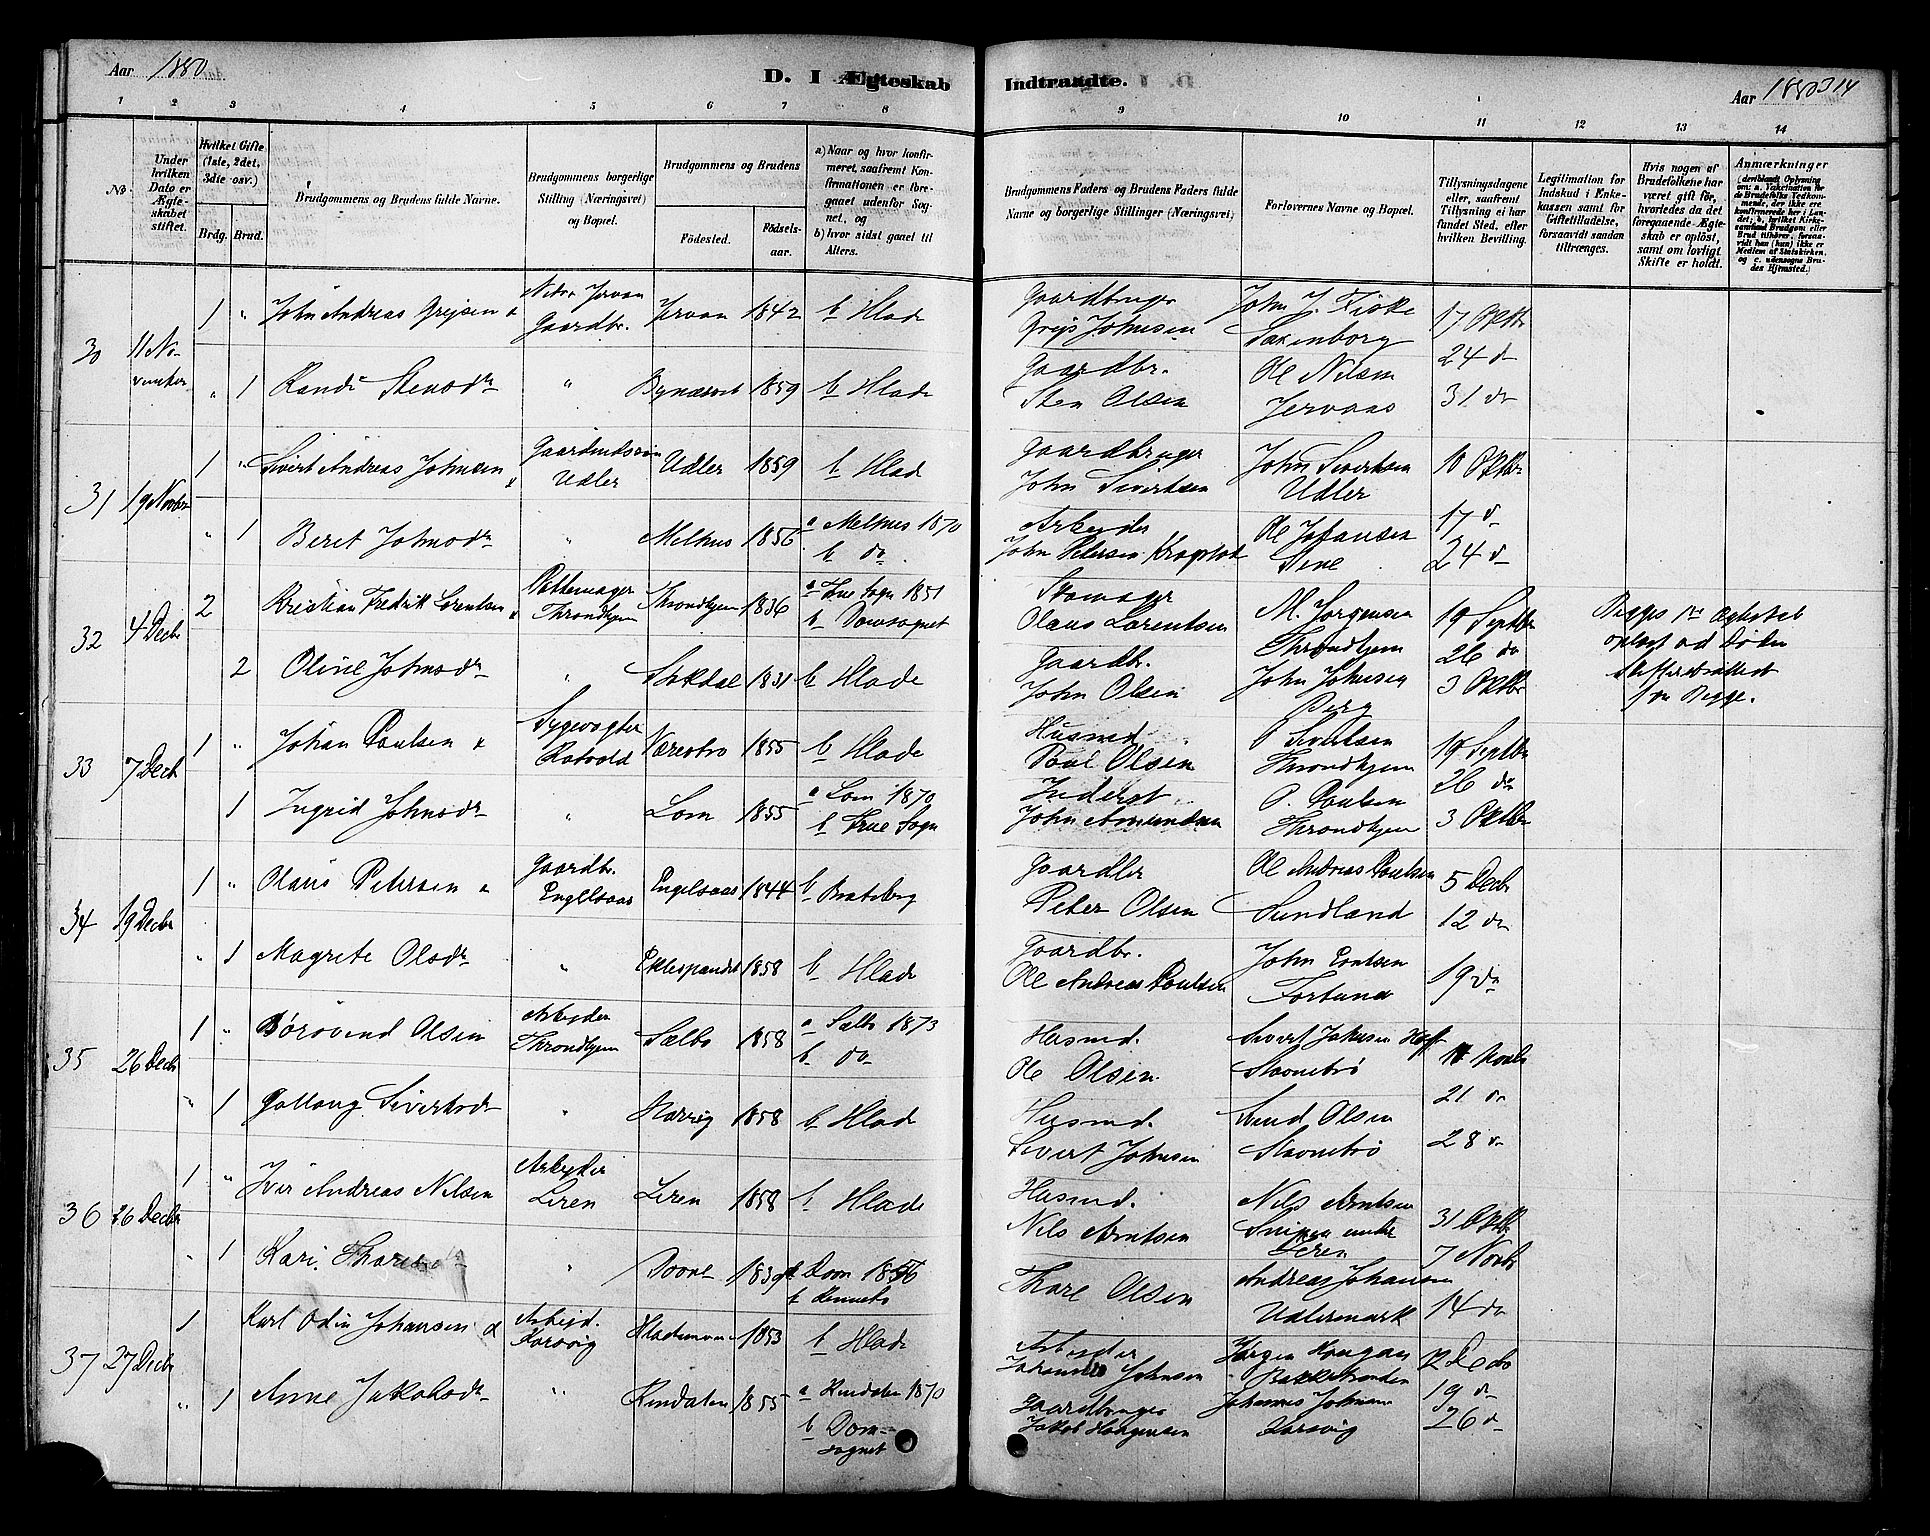 Aar 1880
D. I Ægteskab
Indtraadte.
Aar 1880 314
1 2 3 4 5 6 7 8
9 10 11 12 13 14
No.
Under hvilken Dato er Ægteskabet stiftet.
Hvilket Gifte (1ste, 2det, 3die osv.)
Brdg. Brud.
Brudgommens og Brudens fulde Navne.
Brudgommens borgerlige Stilling (Næringsvei) og Bopæl.
Brudgommens og Brudens
Fødested.
Fødselsaar.
a) Naar og hvor konfirmeret, saafremt Konfirmationen er foregaaet udenfor Sognet, og
b) hvor sidst gaaet til Alters.
Brudgommens Faders og Brudens Faders fulde Navne og borgerlige Stillinger (Næringsvei)
Forlovernes Navne og Bopæl.
Tillysningsdagene eller, saafremt Tillysning ei har fundet Sted, efter hvilken Bevilling.
Legitimation for Indskud i Enkekassen samt for Giftetilladelse, forsaavidt saadan tiltrænges.
Hvis nogen af Brudefolkene har været gift før, hvorledes da det foregaaende Ægteskab er opløst, samt om lovligt Skifte er holdt.
Anmærkninger
30 11 November
1 " John Andreas Grejsen & Nedre Jervan Gaardbr. Jervan 1842 b Hlade
Gaardbruger Grejs Johnsen John J. Fiske Saxenborg 17 Oktbr
" 1 Randi Stensdr " Bynæsset 1859 b Hlade
Gaardbr. Sten Olsen Ole Nilsen Jervaas 24 do 31 do
31 19 Novbr
1 " Sivert Andreas Johnsen & Gaardmandssøn Udler Udler 1859 b Hlade
Gaardbruger John Sivertsen John Sivertsen Udler 10 Oktbr
" 1 Beret Johnsdr " Melhus 1856 a Melhus 1870 b do
Arbejder John Petersen Ole Johansen 17 do 24 do
32 4 Decbr
2 Kristian Fredrik Lorentsen & Pottemager Throndhjem Throndhjem 1836 a Frue Sogn 1851 b Domsognet
Skomager Olaus Lorentsen M. Jørgensen Throndhjem 19 Septbr
2 Oline Johnsdr " Stikdal 1831 b Hlade
Gaardbr. John Olsen John Johnsen Berg 26 do 3 Oktbr
Begges 1ste Ægteskab opløst ved Døden Skifteretsattest fra Begge.
33 7 Decbr
1 " Johan Paulsen & Sygevogter Rotvold 1855 b Hlade
Husmd. Paul Olsen P Sivertsen Throndhjem 19 Septbr
1 Ingrid Johnsdr " Lom 1855 a Lom 1870 b Frue Sogn
Inderst John Amundsen P. Paulsen Throndhjem 26 do 3 Oktbr
34 19 Decbr
1 " Olaus Petersen & Gaardbr. Engelsaas Engelsaas 1844 b Bratsberg
Gaardbr Peter Olsen Ole Andreas Paulsen Sundland 5 Decbr 12 do
" 1 Magrete Olsdr " 1858 b Hlade
Gaardbr. Ole Andreas Paulsen John Paulsen Fortuna 19 do
35 26 Decbr
1 " Børøvend Olsen Arbejder Throndhjem Sælbo 1858 a Sælbo 1873 b do
Husmd. Ole Olsen Sivert Johnsen Stavnebrø Novbr
" 1 Gollaug Sivertsdr " 1858 b Hlade
Husmd. Sivert Johnsen Svend Olsen Stavnebrø 21 do 28 do
36 26 Decbr
1 " Iver Andreas Nilsen Arbejder Leren Leren 1858 b Hlade
Husmd. Nils Arntsen Nils Arntsen under Leren 31 Oktbr
" 1 Kari " Dovre 1839 1856
Thore Olsen Andreas Johansen Udlermark 7 Novbr 14 do
37 27 Decbr
1 Karl Odin Johansen & Arbejd. Korsvig 1853 b Hlade
Arbejder Johnsen Jørgen Haugan 12 Decbr
" 1 Anne Jakobsdr " Rindalen 1855 a Rindalen 1870 b Domsognet
Gaardbruger Jakob Haagensen Johannes Johnsen Korsvig 19 do 26 do